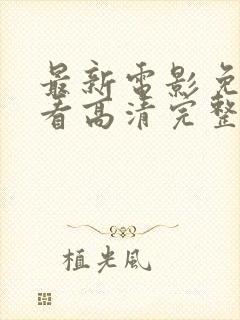 最新電影免
看高清完整
植光風